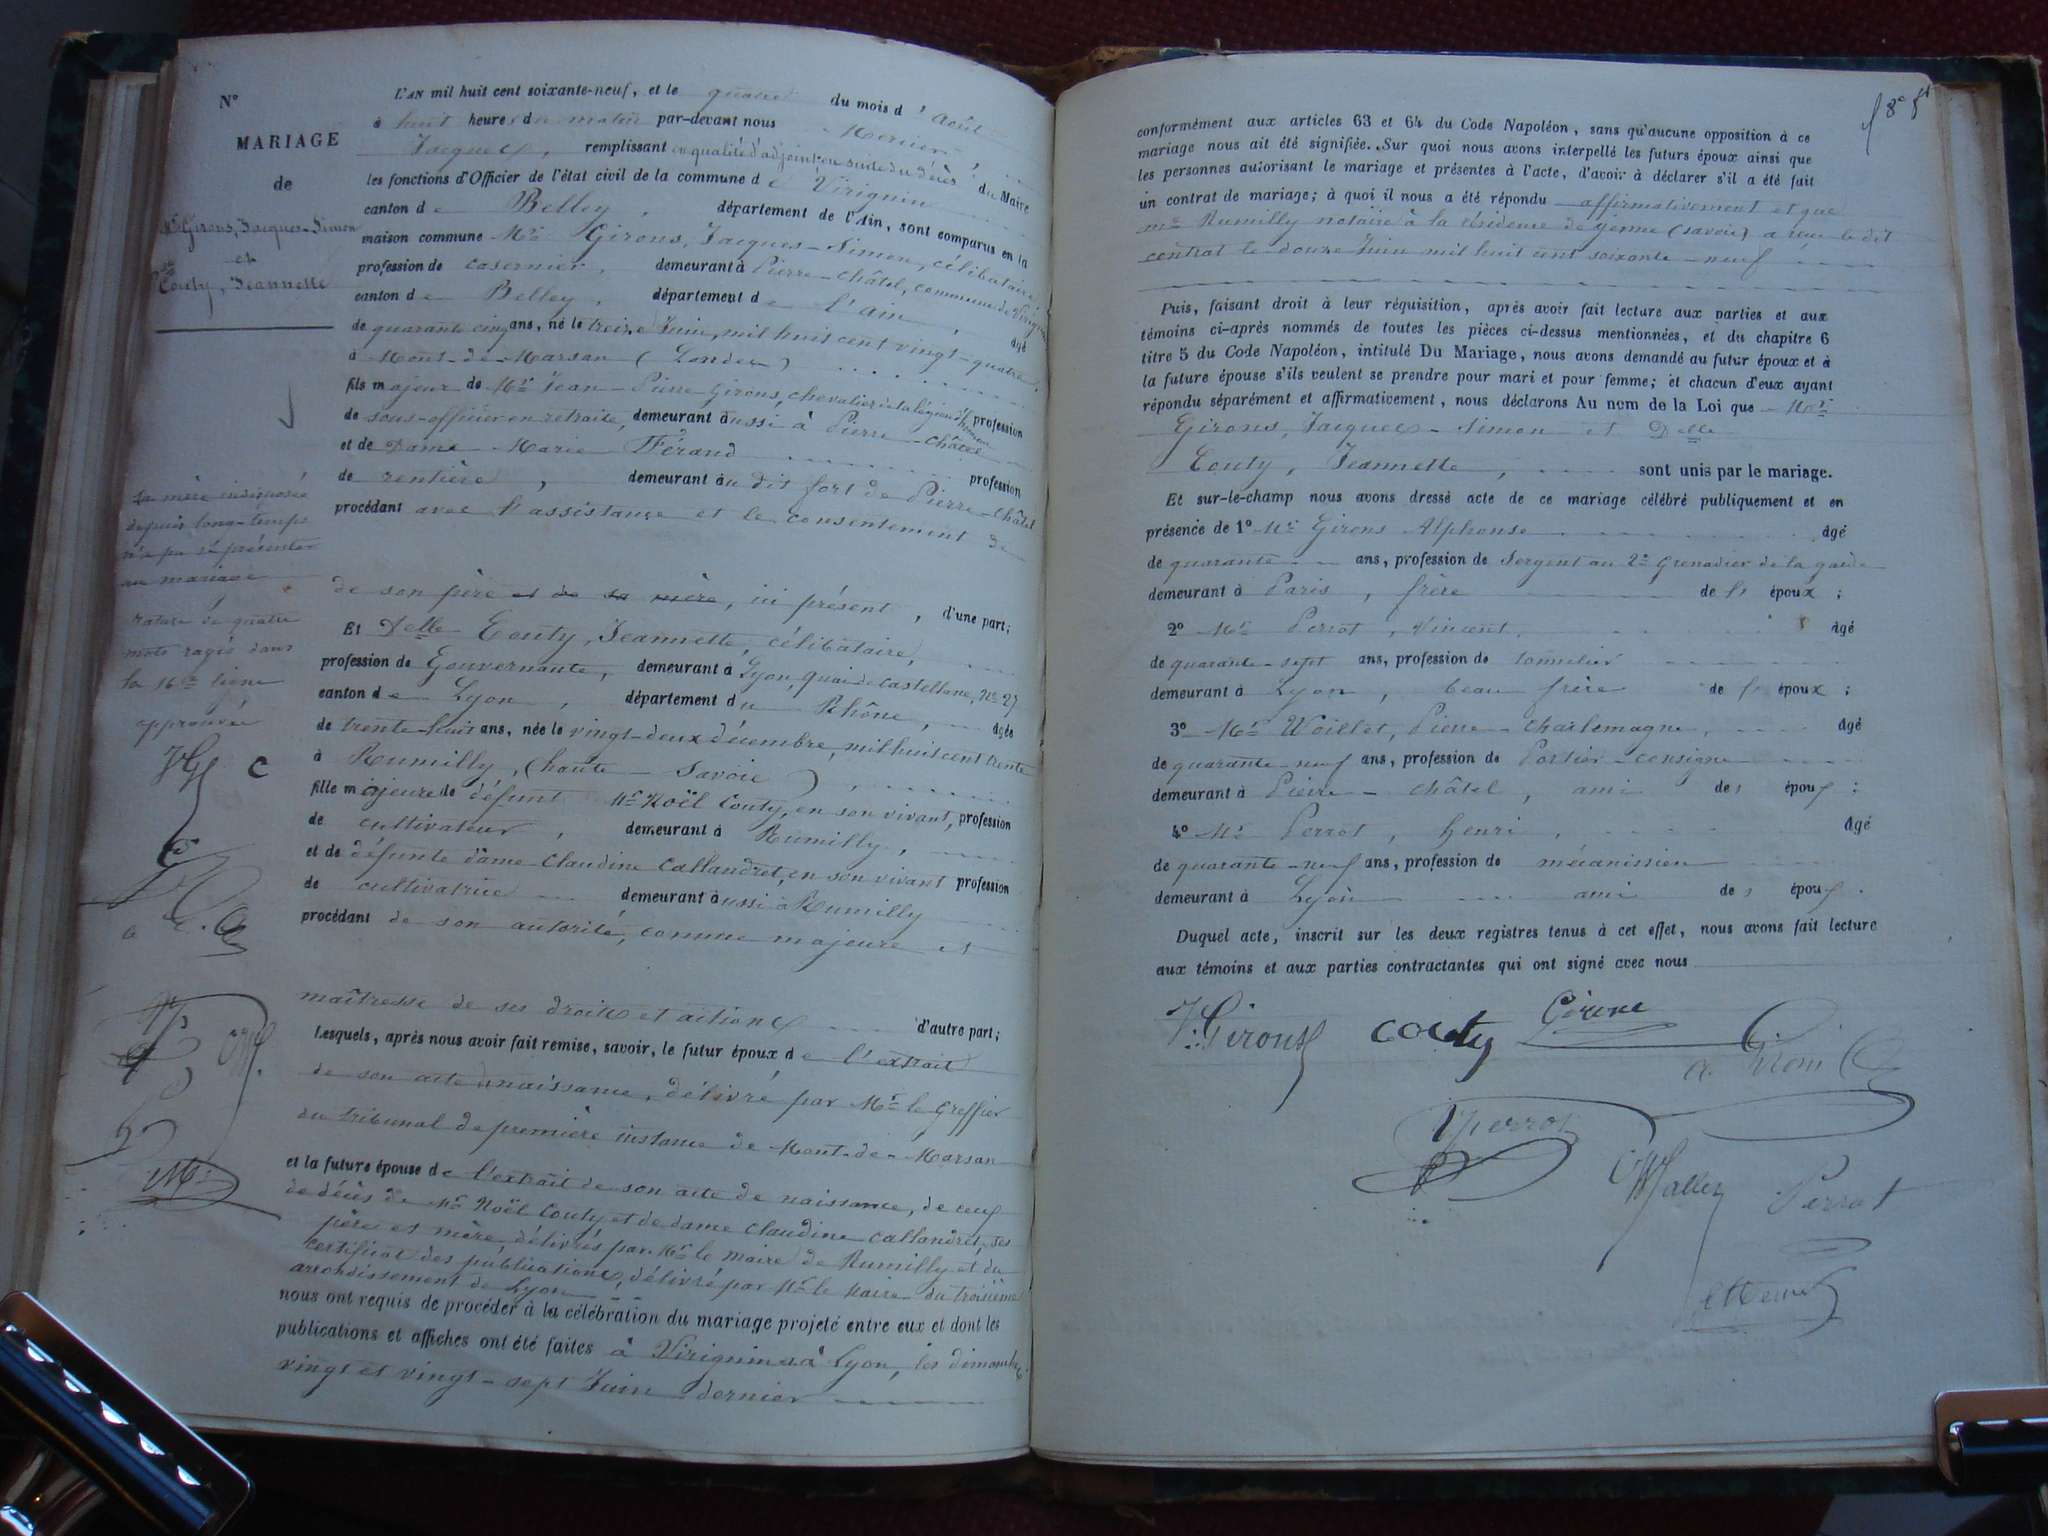 N°
MARIAGE
de
Mr Girons, Jacques-Simon
et
Couty, Jeannette
L'AN mil huit cent soixante-neuf, et le quatre du mois d'Août
à huit heures du matin par-devant nous Mercier
Jacques, remplissant en qualité d'adjoint en suite du décès du Maire
les fonctions d'Officier de l'état civil de la commune de Virignin
canton de Belley, département de l'Ain, sont comparus en la
maison commune Mr Girons, Jacques-Simon, célibataire,
profession de casernier, demeurant à Pierre-Châtel, commune de Virignin
canton de Belley, département de l'ain, âgé
de quarante cinq ans, né le treize Juin, mil huit cent vingt-quatre,
à Mont-de-Marsan (Landes)
fils majeur de Mr Jean-Pierre Girons, chevalier de la légion d'honneur profession
de sous-officier en retraite, demeurant aussi à Pierre-Châtel
et de Dame Marie Férand profession
de rentière, demeurant au dit fort de Pierre-Châtel
procédant avec l'assistance et le consentement de
de son père et de sa mère, ici présent, d'une part;
Et Delle Couty, Jeannette, célibataire,
profession de Gouvernante, demeurant à Lyon, quai de Castellane, No 27
canton de Lyon, département du Rhône, âgée
de trente-huit ans, née le vingt-deux décembre, mil huit cent trente
à Rumilly, (haute-Savoie)
fille majeure de défunt Mr Noël Couty, en son vivant, profession
de cultivateur, demeurant à Rumilly,
et de défunte dame Claudine Callandret, en son vivant profession
de cultivatrice demeurant aussi à Rumilly
procédant de son autorité, comme majeure et
maîtresse de ses droits et actions d'autre part;
Lesquels, après nous avoir fait remise, savoir, le futur époux de l'extrait
de son acte de naissance, délivré par Mr le Greffier
du tribunal de première instance de Mont-de-Marsan
et la future épouse de l'extrait de son acte de naissance, de ceux
de décès de Mr Noël Couty et de dame Claudine Callandret, ses
père et mère, délivrés par Mr le Maire de Rumilly et du
certificat des publications, délivré par Mr le Maire du troisième
arrondissement de Lyon
nous ont requis de procéder à la célébration du mariage projeté entre eux et dont les
publications et affiches ont été faites à Virignin et à Lyon, les dimanches
vingt et vingt-sept Juin dernier
la mère indisposée
depuis long-temps
n'a pu se présenter
au mariage
rature de quatre
mots rayés dans
la 16me ligne
approuvée
JG C
conformément aux articles 63 et 64 du Code Napoléon, sans qu'aucune opposition à ce
mariage nous ait été signifiée. Sur quoi nous avons interpellé les futurs époux ainsi que
les personnes autorisant le mariage et présentes à l'acte, d'avoir à déclarer s'il a été fait
un contrat de mariage; à quoi il nous a été répondu affirmativement et que
me Rumilly notaire à la résidence de yenne (savoie) a reçu le dit
contrat le douze Juin mil huit cent soixante-neuf
Puis, faisant droit à leur réquisition, après avoir fait lecture aux parties et aux
témoins ci-après nommés de toutes les pièces ci-dessus mentionnées, et du chapitre 6
titre 5 du Code Napoléon, intitulé Du Mariage, nous avons demandé au futur époux et à
la future épouse s'ils veulent se prendre pour mari et pour femme; et chacun d'eux ayant
répondu séparément et affirmativement, nous déclarons Au nom de la Loi que Mr
Girons, Jacques-Simon et Delle
Couty, Jeannette, sont unis par le mariage.
Et sur-le-champ nous avons dressé acte de ce mariage célébré publiquement et en
présence de 1° Mr Girons Alphonse âgé
de quarante ans, profession de Sergent au 2e Grenadier de la garde
demeurant à Paris, frère de l'époux;
2° Mr Perrot, Vincent, âgé
de quarante-sept ans, profession de tonnelier
demeurant à Lyon, beau frère de l'époux;
3° Mr Woillet, Pierre-Charlemagne, âgé
de quarante-neuf ans, profession de Portier-consigne
demeurant à Pierre-châtel, ami des époux;
4° Mr Perrot, henri, âgé
de quarante-neuf ans, profession de mécanissien
demeurant à Lyon ami des époux.
Duquel acte, inscrit sur les deux registres tenus à cet effet, nous avons fait lecture
aux témoins et aux parties contractantes qui ont signé avec nous
J. Girons couty Girons
a. Girons
Vperrot
Perrot